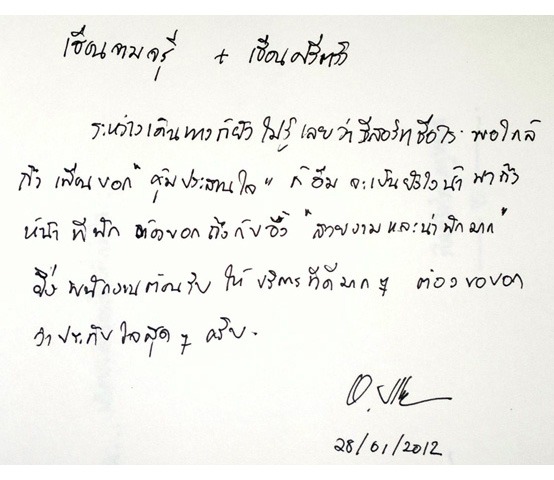 เรียน จามจุรี + เรียนศรีตรัง
ระหว่างเดินทางก็ยังไม่รู้เลยว่ารีสอร์ทชื่ออะไร พอใกล้
ถึง เพื่อนบอก "คุ้มประสานใจ" ก็อืม จะเป็นยังไงน้า พาถึง
หน้า ที่พัก ต้องบอกถึงกับอึ้ง "สวยงามและน่าพักมาก"
ยิ่ง พนักงานต้อนรับ ให้บริการที่ดีมาก ๆ ต้องขอบอก
ว่าประทับใจสุด ๆ ครับ.
28/01/2012